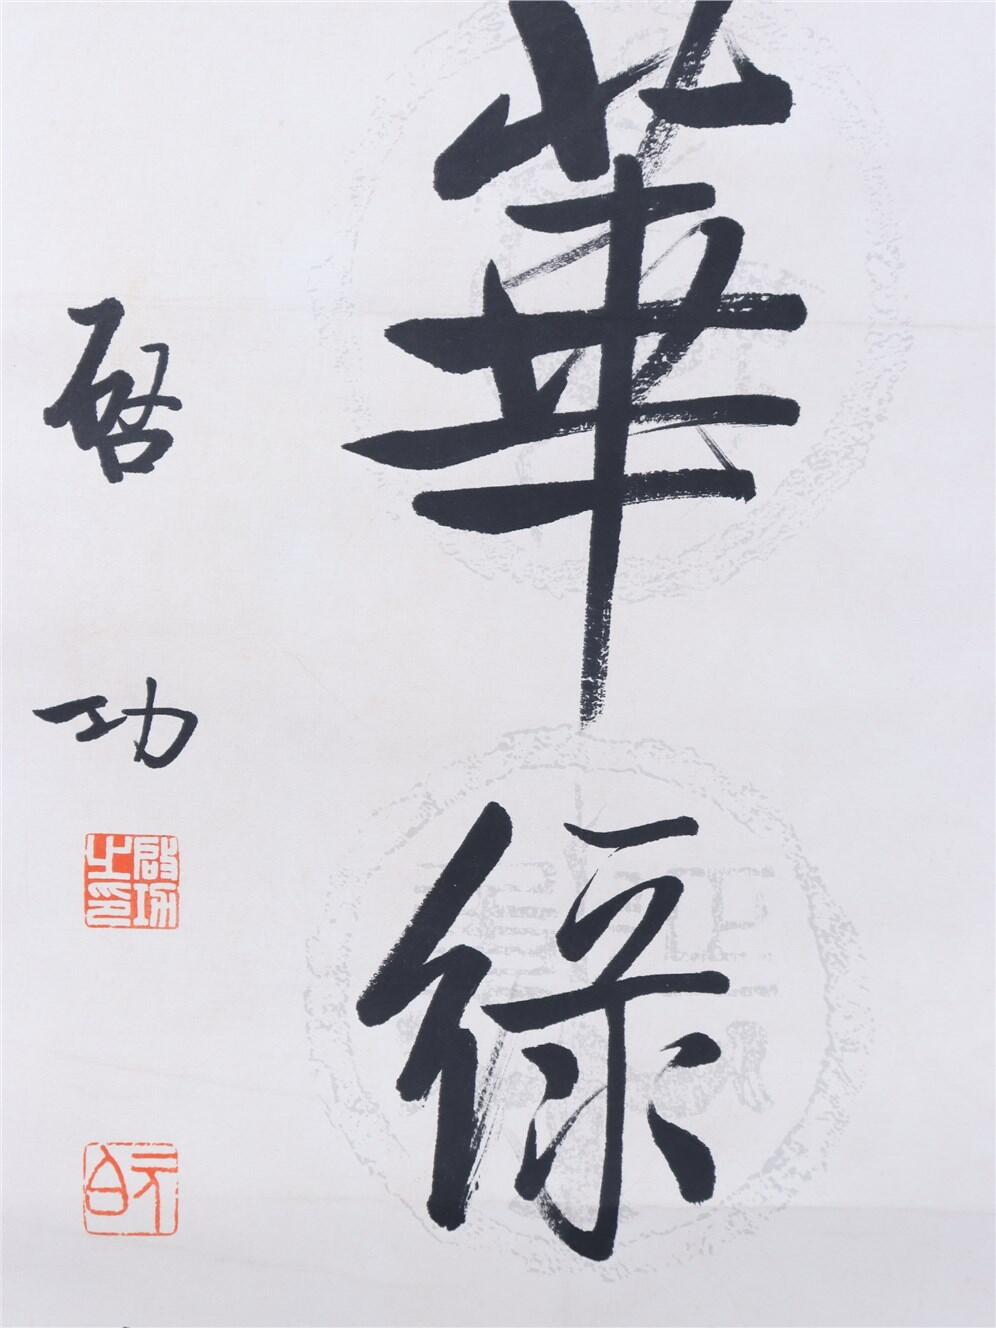 華綠
啓功
啟功之印
元白